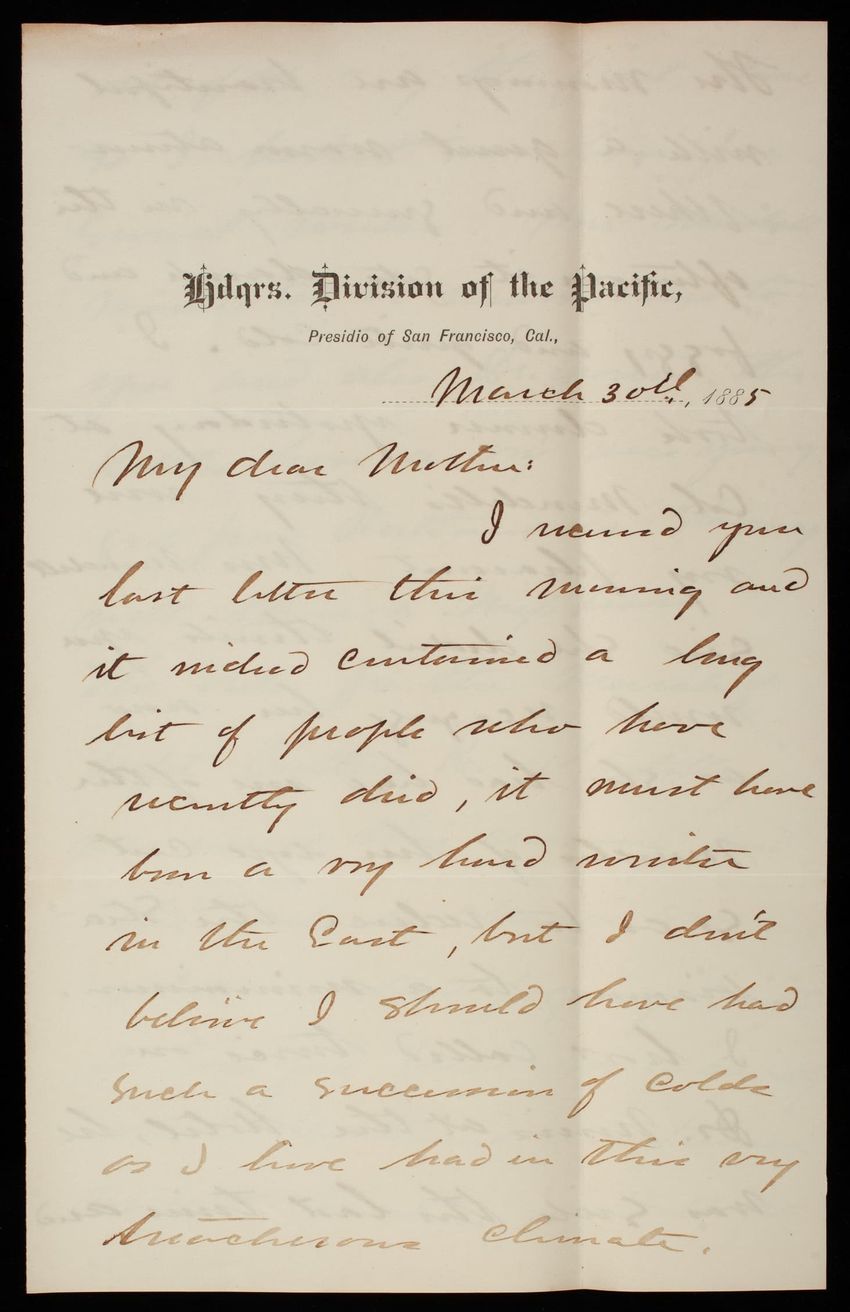 Hdqrs. Division of the Pacific,
Presidio of San Francisco, Cal.,
March 30th, 1885
My dear Mother:
I received your
last letter this morning and
it indeed contained a long
list of people who have
recently died, it must have
been a very hard winter
in the East, but I don't
believe I should have had
such a succession of colds
as I have had in this very
treacherous climate.